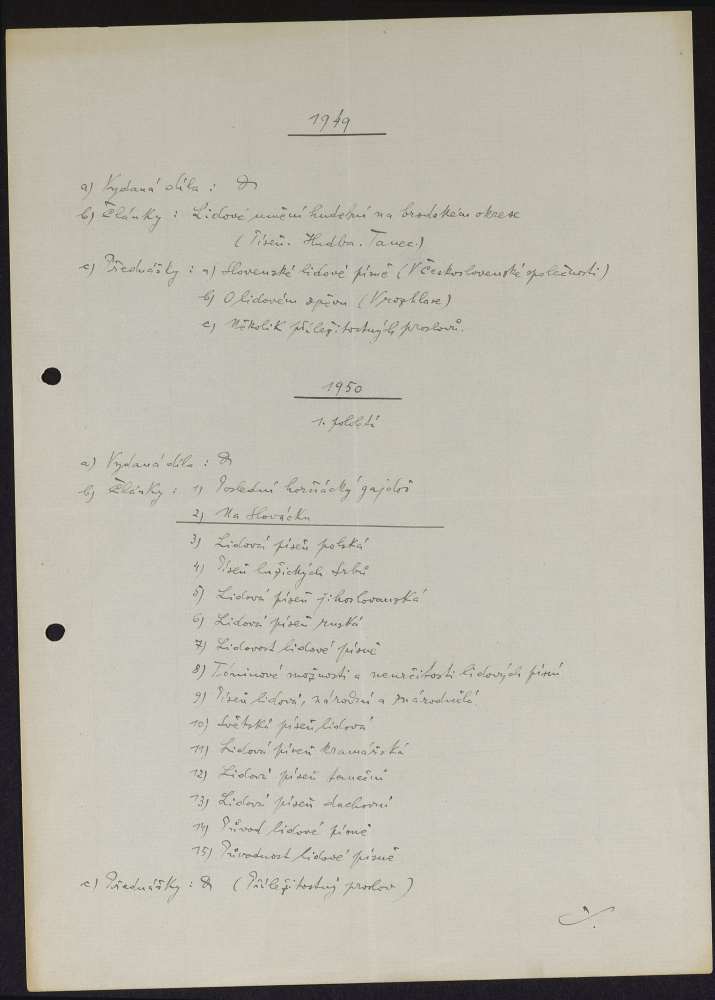 1949
a) Vydaná díla :
b) Články : Lidové umění hudební na brodském okrese
(Píseň. Hudba. Tanec.)
c) Přednášky : a) Slovenské lidové písně (V Československé společnosti)
b) O lidovém zpěvu (V rozhlase)
c) Několik příležitostných proslovů.
1950
1. pololetí
a) Vydaná díla :
b) Články : 1) Poslední horňácký gajdoš
2) Na Slovácku
3) Lidová píseň polská
4) Píseň lužických Srbů
5) Lidová píseň jihoslovanská
6) Lidová píseň ruská
7) Lidovost lidové písně
8) Tóninové možnosti a neurčitosti lidových písní
9) Píseň lidová, národní a znárodnělá
10) Světská píseň lidová
11) Lidová píseň kramářská
12) Lidová píseň taneční
13) Lidová píseň duchovní
14) Původ lidové písně
15) Původnost lidové písně
c) Přednášky : (Příležitostný proslov)